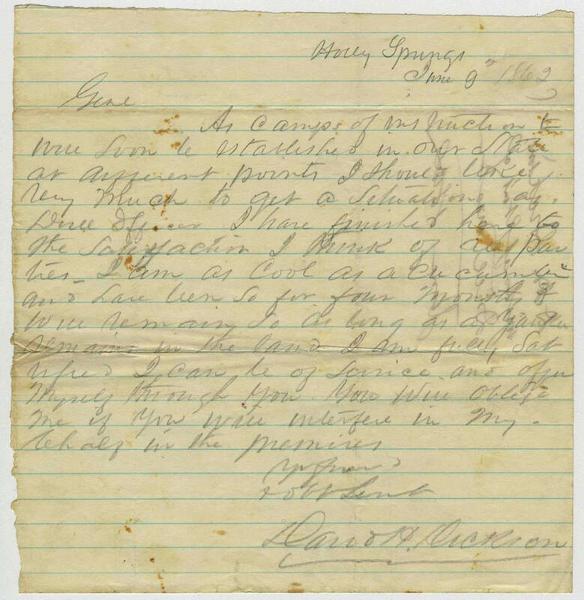 Holly Springs
June 9th 1862
Genl
As camps of instruction
will soon be established in our State
at different points I should like
very much to get a Situation say
Drill Officer I have finished here to
the Satisfaction I think of all par
ties I am as Cool as a cucumber
and have been so for four months &
will remain so as long as a Yankee
remains in the land I am fully Sat
isfied I can be of Service and offer
myself through You You will oblige
me if You will interfere in my
behalf in the premises
Yr friend
& obt Servt
David H. Dickson